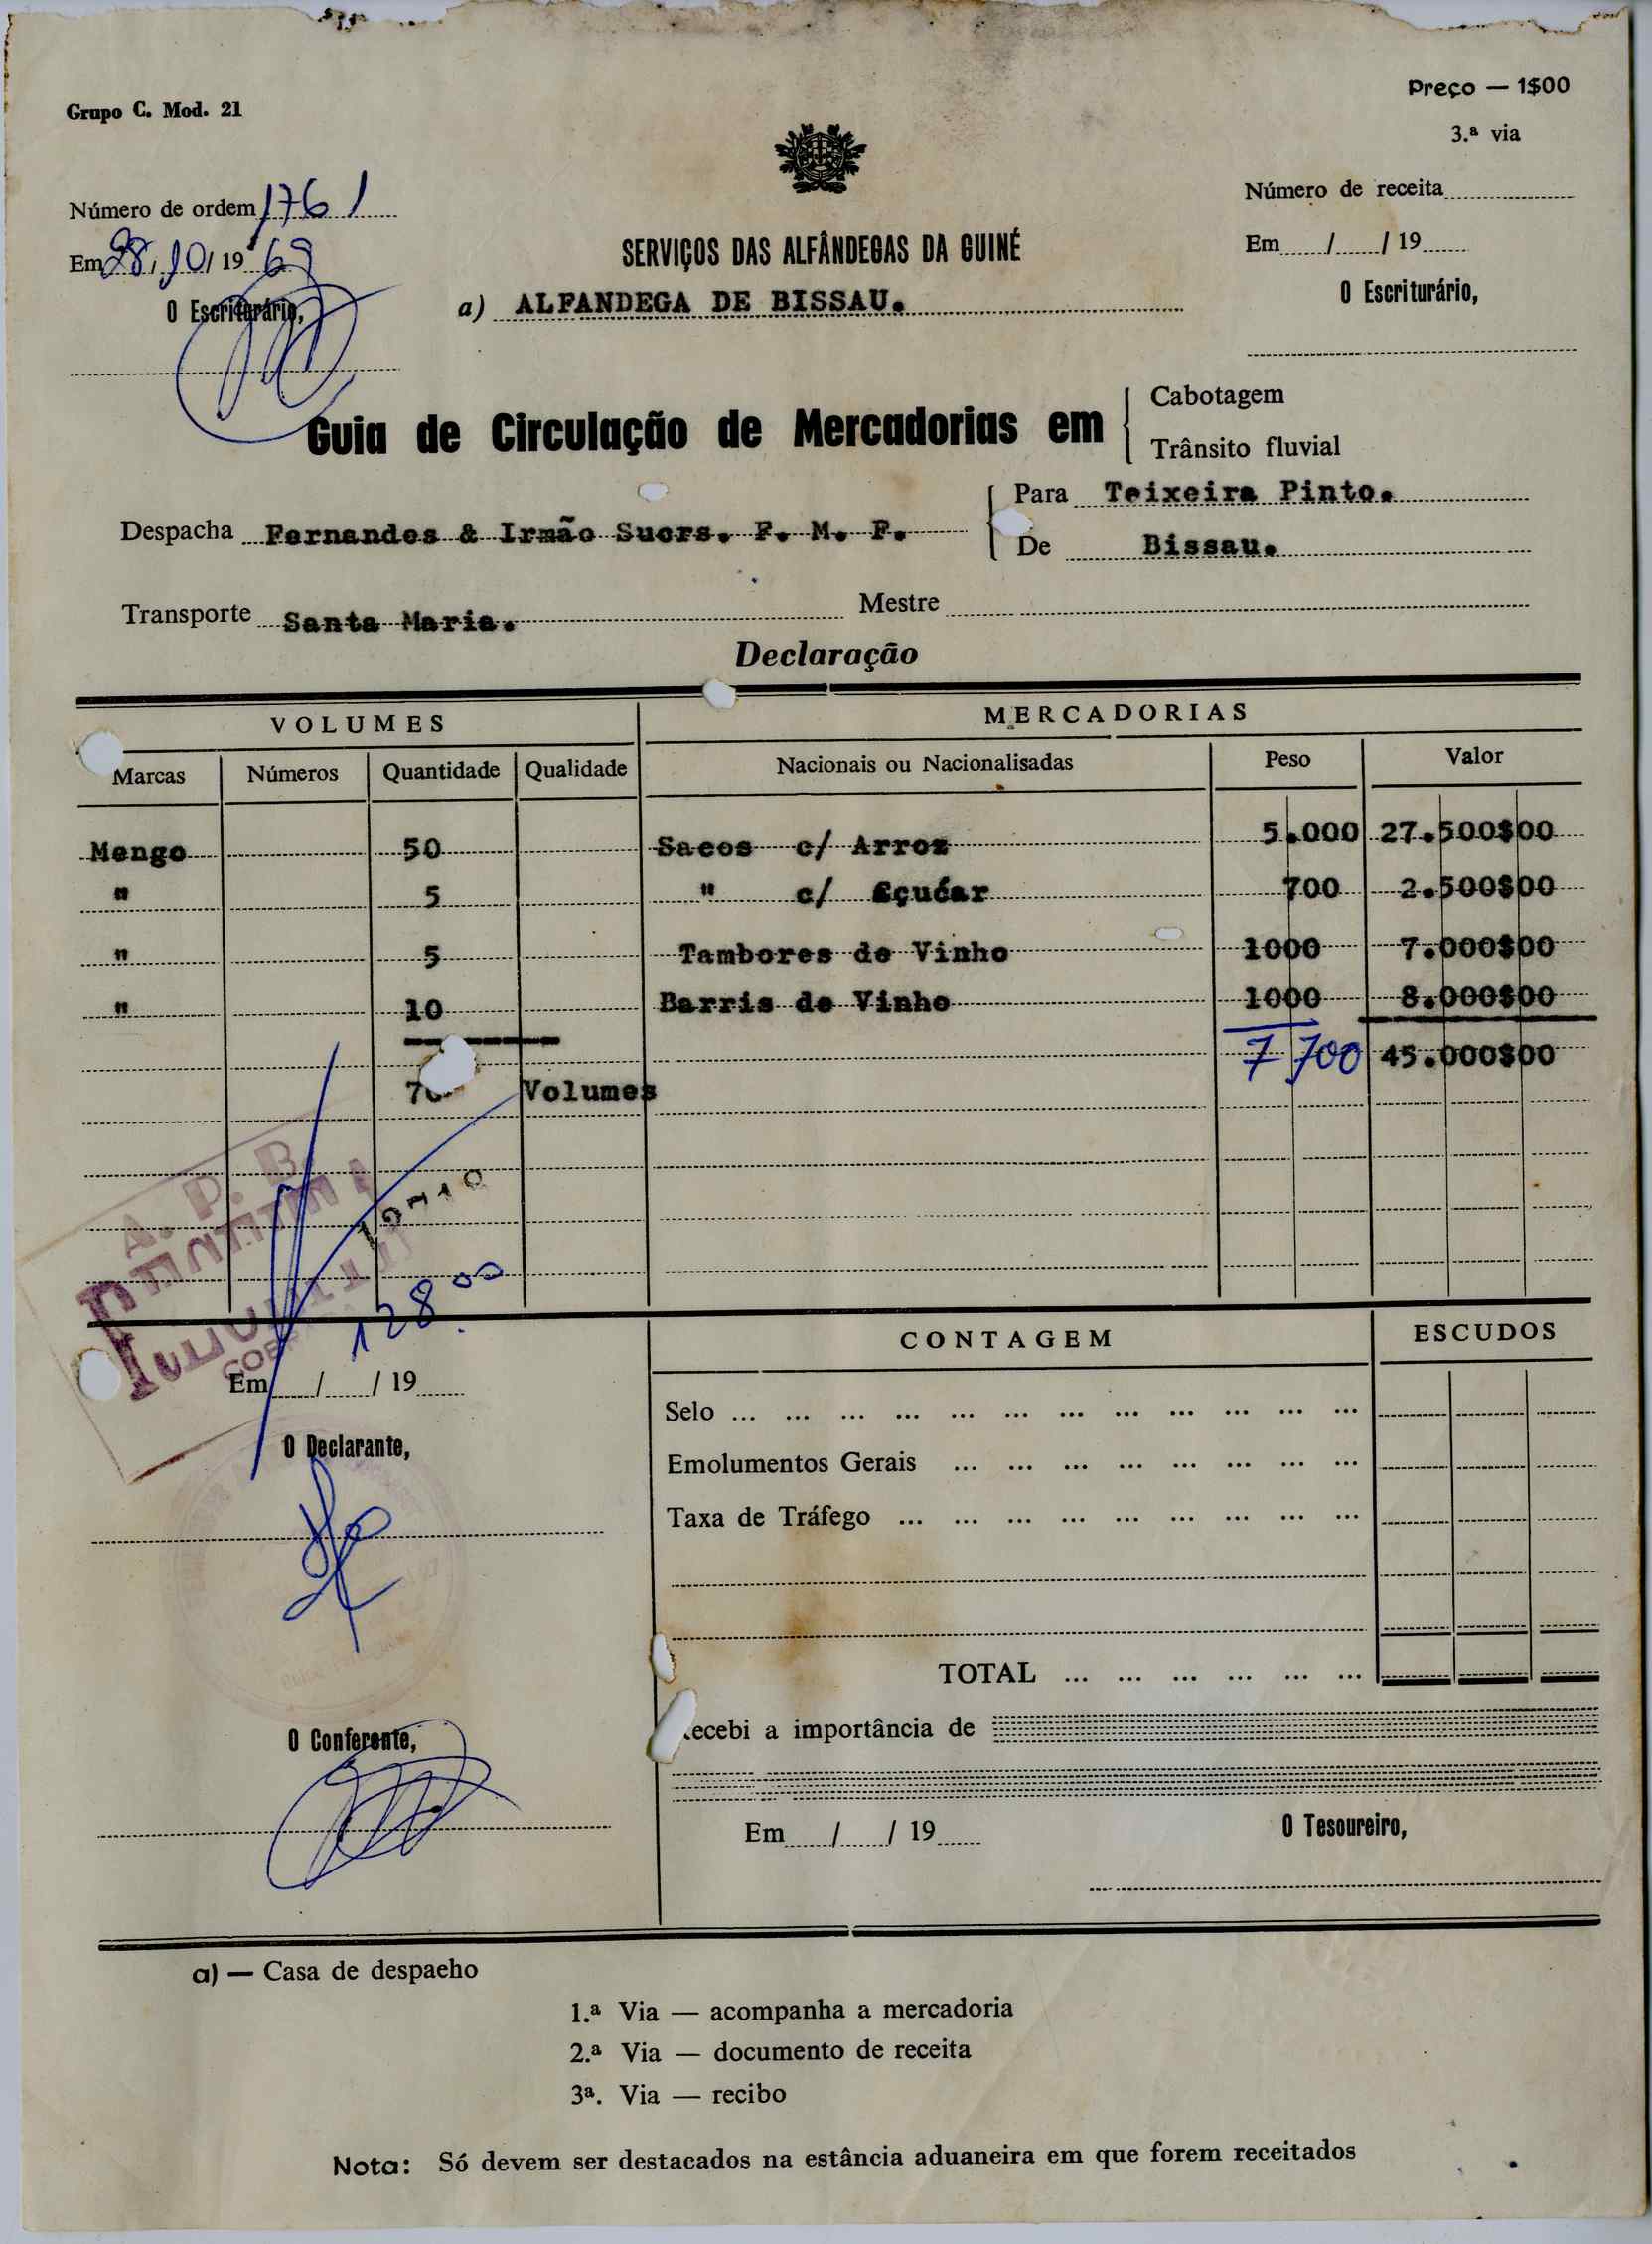 Grupo C. Mod. 21
Preço — 1$00
3.ª via
Número de ordem 1761
Número de receita
Em 28/10/19 69
Em / / 19
SERVIÇOS DAS ALFÂNDEGAS DA GUINÉ
O Escriturário,
O Escriturário,
a) ALFANDEGA DE BISSAU.
Guia de Circulação de Mercadorias em
Cabotagem
Trânsito fluvial
Despacha Fernandes & Irmão Sucrs. F. M. F.
Para Teixeira Pinto.
De Bissau.
Transporte Santa Maria. Mestre
Declaração
VOLUMES MERCADORIAS
Marcas Números Quantidade Qualidade Nacionais ou Nacionalisadas Peso Valor
Mengo 50 Sacos c/ Arroz 5.000 27.500$00
" 5 " c/ Açućar 700 2.500$00
" 5 Tambores de Vinho 1000 7.000$00
" 10 Barris de Vinho 1000 8.000$00
7 700 45.000$00
Volumes
A. P. B.
128.00
CONTAGEM ESCUDOS
Em / / 19
Selo ... ... ... ... ... ... ... ... ... ... ... ...
O Declarante,
Emolumentos Gerais ... ... ... ... ... ... ... ...
Taxa de Tráfego ... ... ... ... ... ... ... ... ...
TOTAL ... ... ... ... ... ...
O Conferente,
ecebi a importância de
Em / / 19
O Tesoureiro,
a) — Casa de despaeho
1.ª Via — acompanha a mercadoria
2.ª Via — documento de receita
3ª. Via — recibo
Nota: Só devem ser destacados na estância aduaneira em que forem receitados